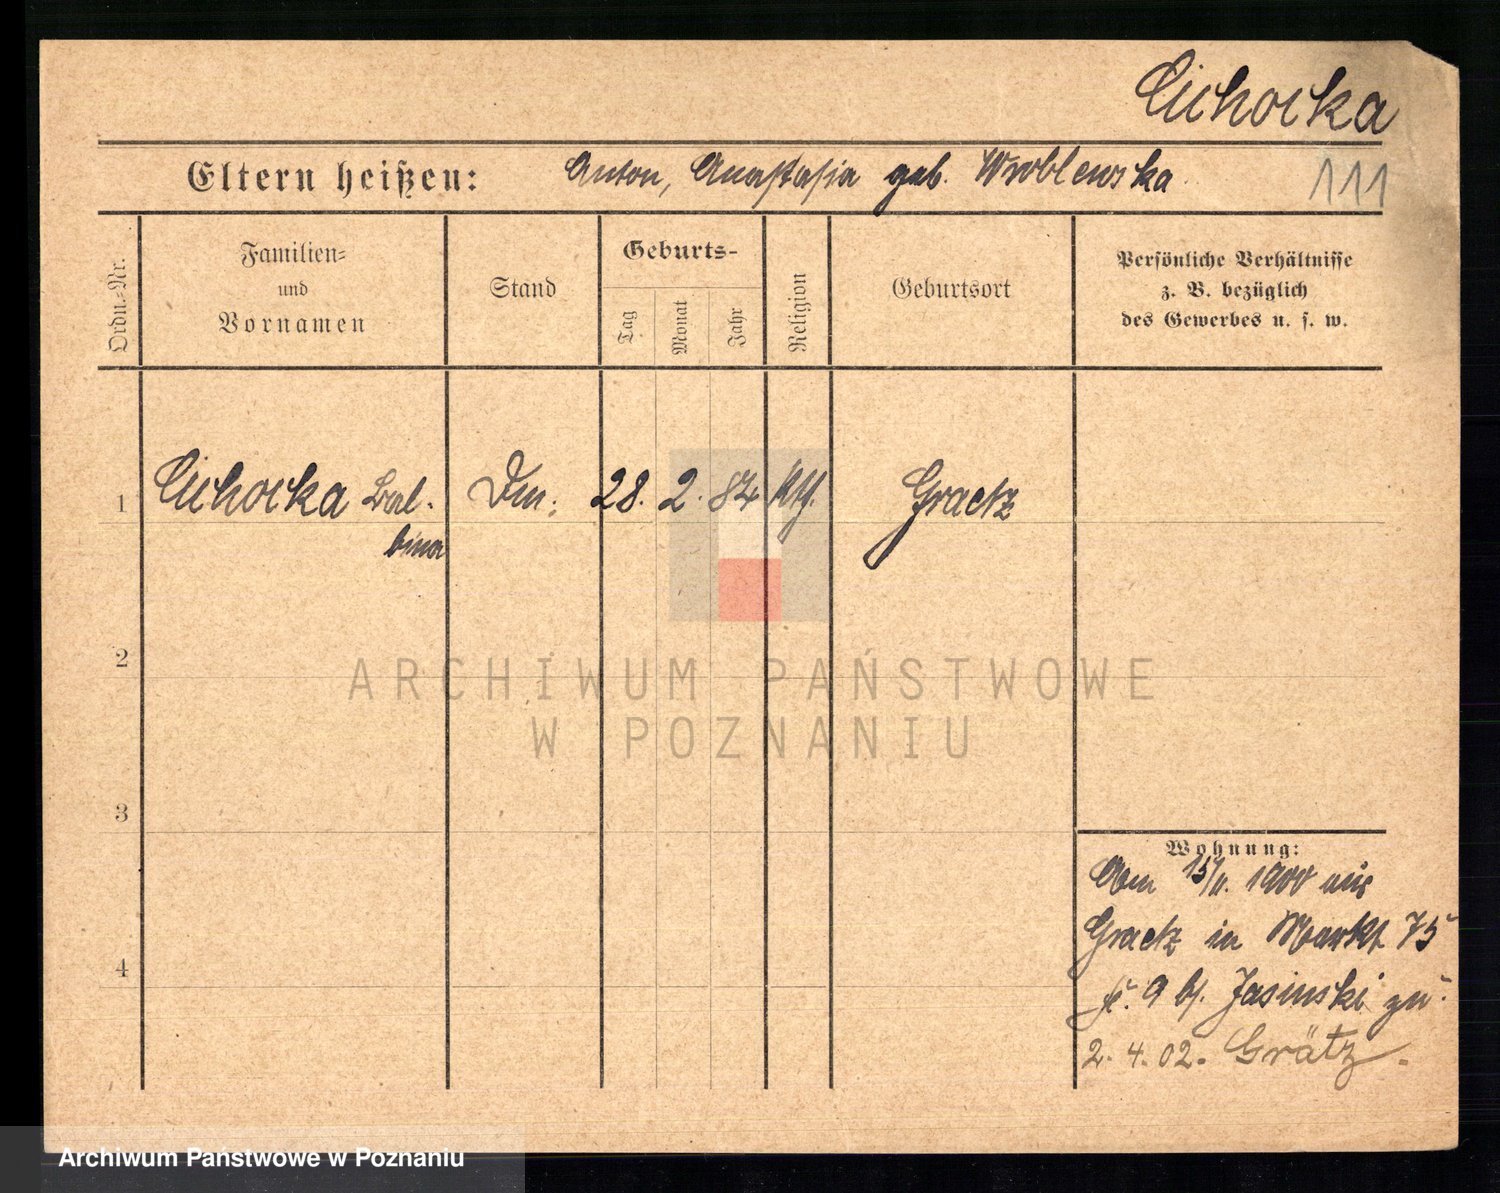 Cichocka
Eltern heißen: Anton, Anastasia geb. Wroblewska
111
Ordn.-Nr.
Familien-
und
Vornamen
Stand
Geburts-
Tag
Monat
Jahr
Religion
Geburtsort
Persönliche Verhältnisse
z. B. bezüglich
des Gewerbes u. s. w.
1 Cichocka Bal- 28. 2. 84 Kth. Graetz
bina
2
3
4
ARCHIWUM PAŃSTWOWE
W POZNANIU
Wohnung:
1900 aus
Graetz in Markt 75
9 b/. Jasinski zu.
2. 4. 02. Grätz.
Archiwum Państwowe w Poznaniu